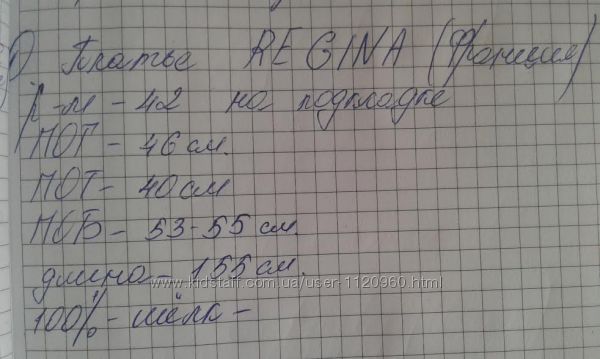 1) Платье REGINA (Франция)
р-м - 42 на подкладке
ПОГ - 46 см.
ПОТ - 40 см
ПОБ - 53-55 см.
длина - 155 см.
www.kidstaff.com.ua/user-1120960.html
100% - шёлк -